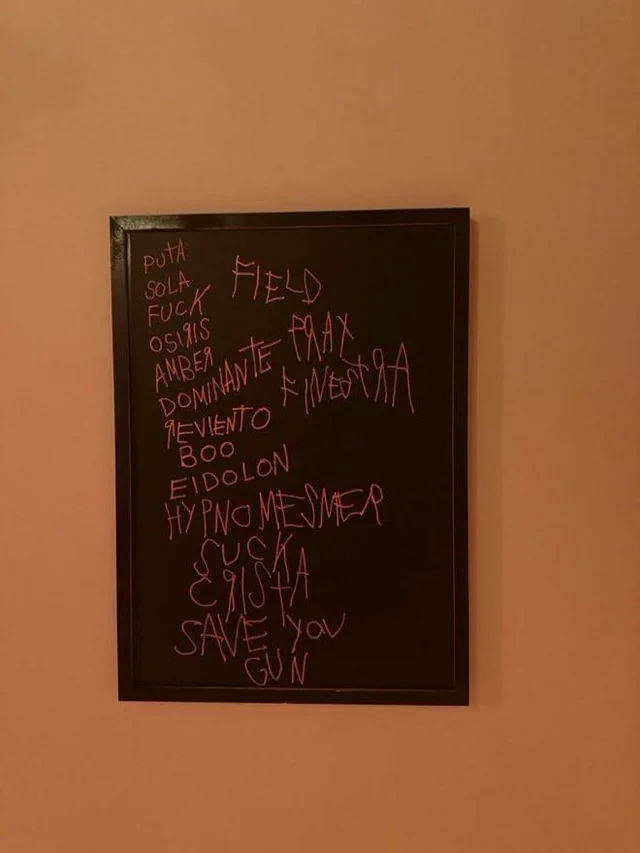 PUTA
SOLA
FIELD
FUCK
OSIRIS
AMBER
PRAX
DOMINANTE
FINESTRA
REVIENTO
BOO
EIDOLON
HYPNOMESMER
SUCK
CRISTA
SAVE YOU
GUN